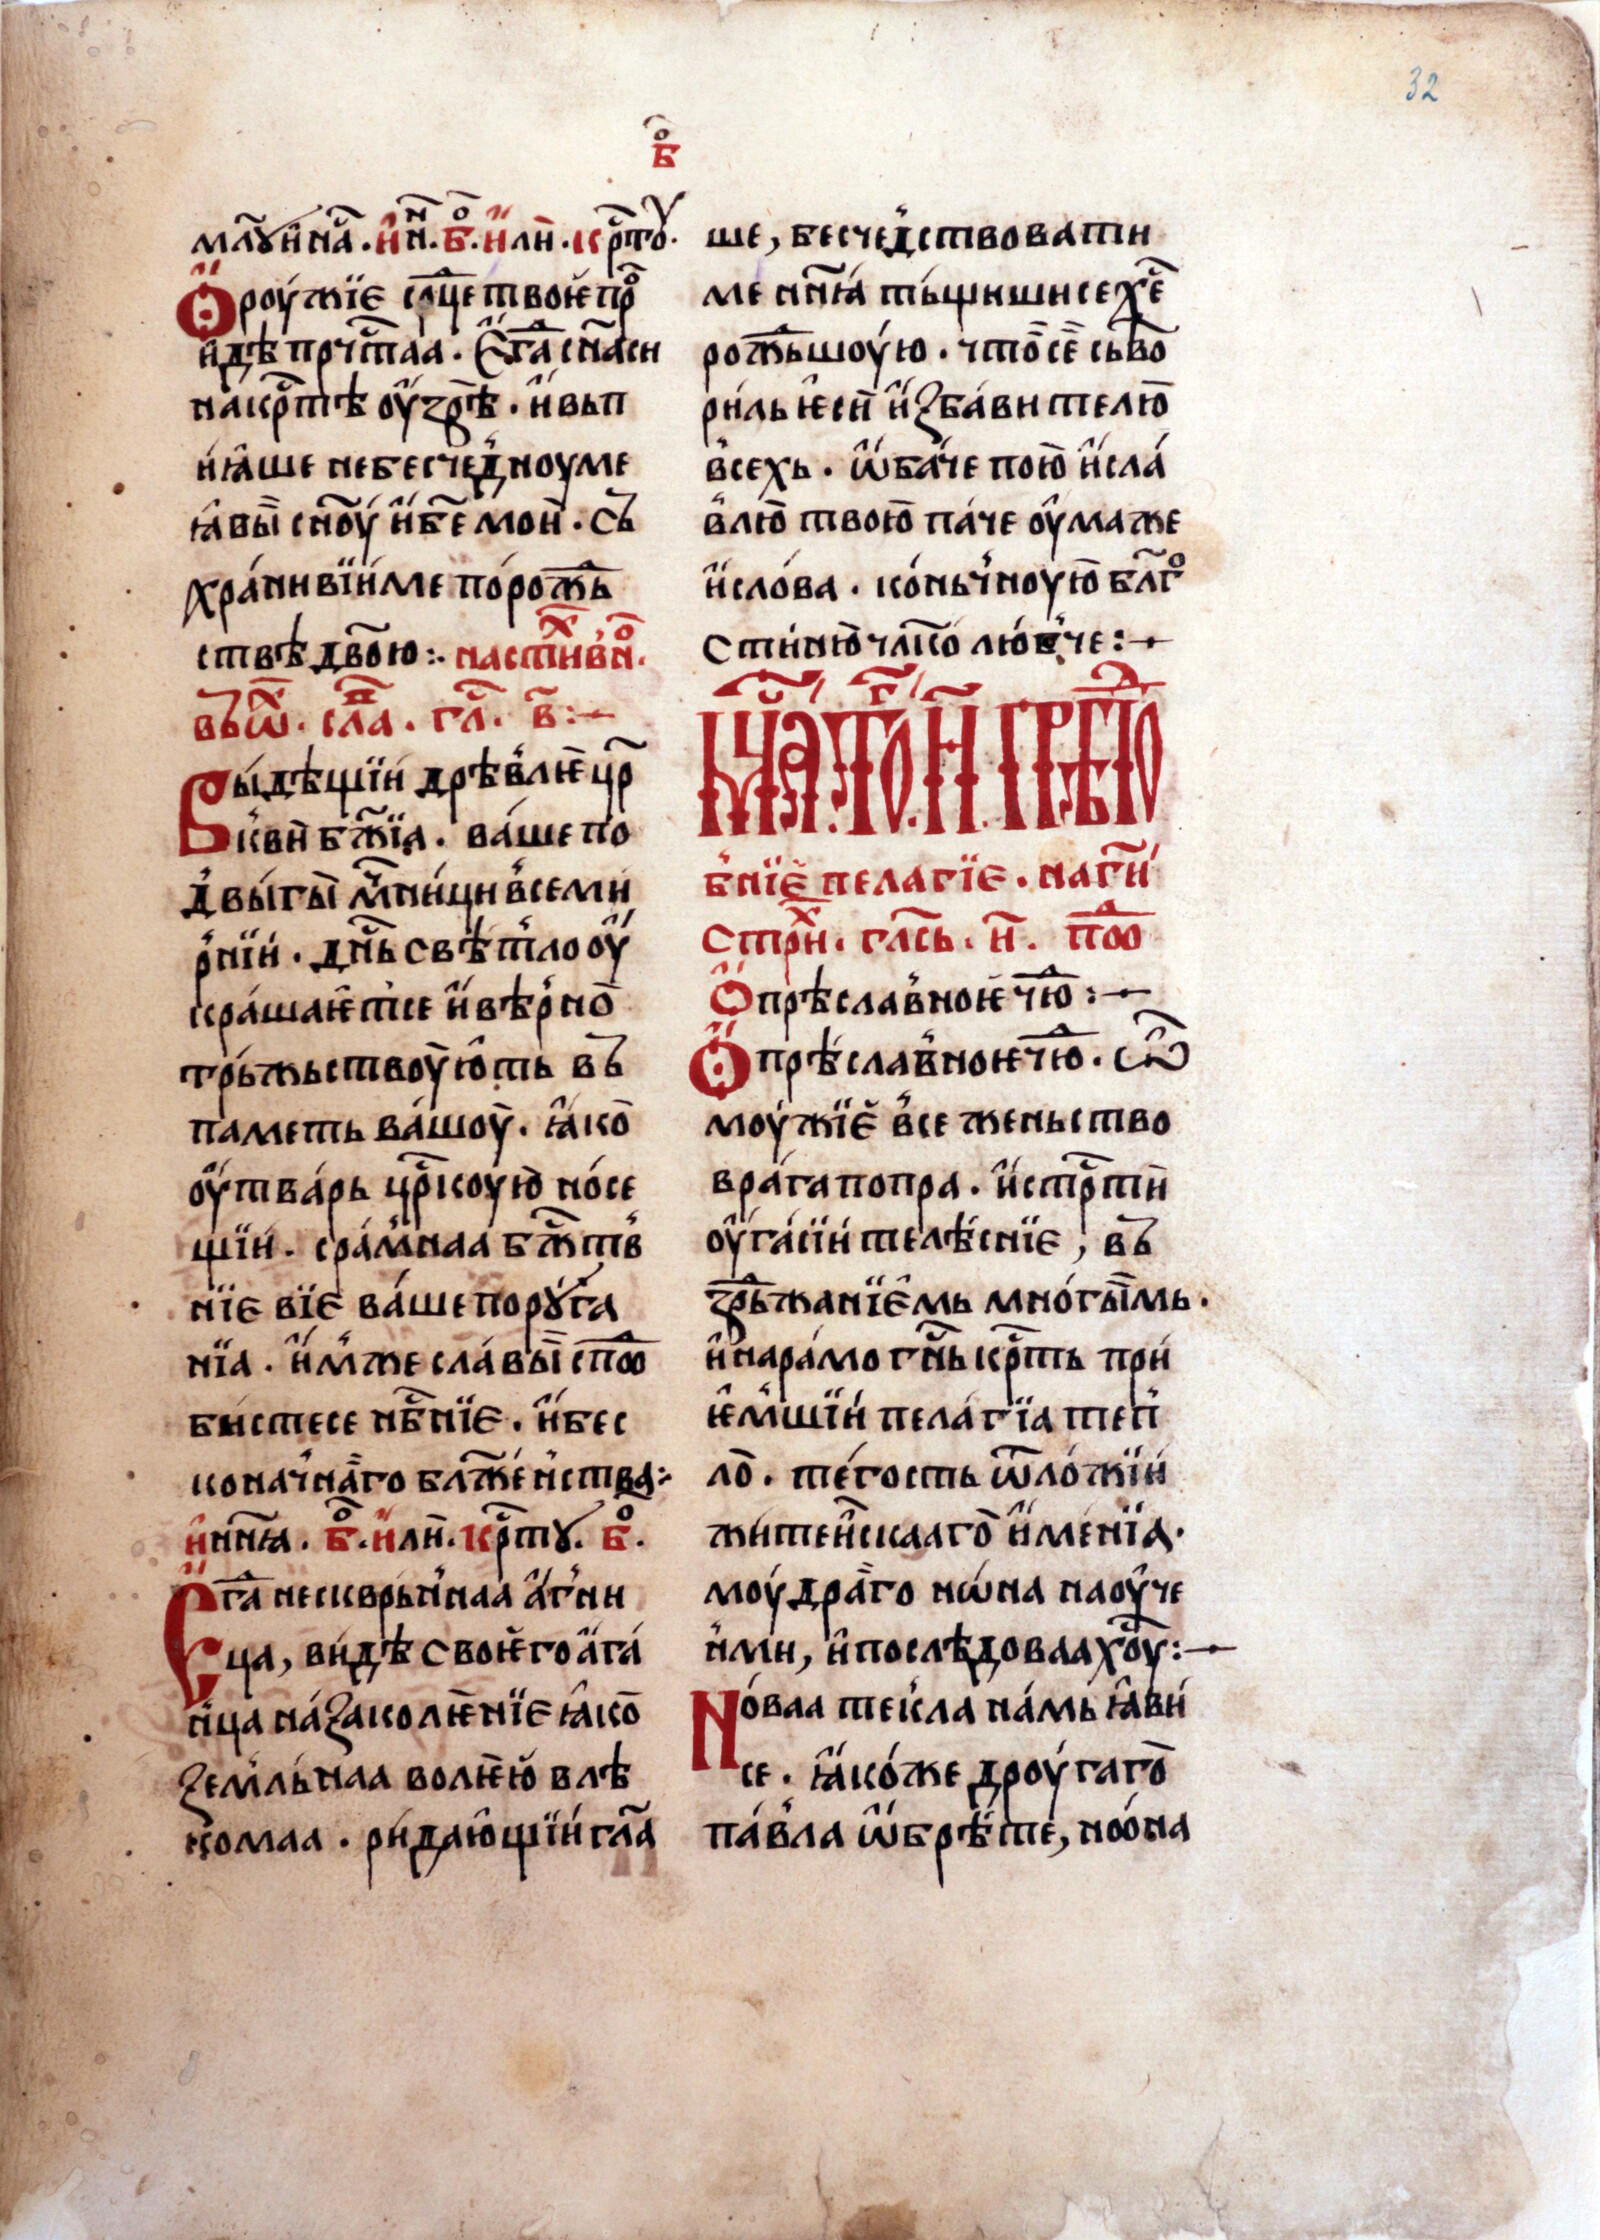 32
б҃о
мл҃ꙋи на҃ . и нн҃ . б҃о . или . крⷭ҇тоу .
Ороужїе срⷣце твоѥ про
иде прчⷭ҇таа . Ѥгⷣа сн҃а си
на крⷭ҇тѣ оузрѣ . и вьп
иꙗше не бесчедноу ме
ꙗвы сн҃оу и бж҃е мои . Съ
хранивїи ме по рожⷣь
ствѣ двⷭ҇ою :· на стихⷪ҇вн .
въⷯ ѿ . слⷡ҇а . глⷭ҇ . в҃ :~
Выдѣщїи дрѣвлѥ црⷪ҇
кви бж҃їа . ваше по
двыгы мⷱ҇ници всеми
рнїи . дн҃ь свѣтло оу
крашаѥтсе и вѣрно
трьжьствоують въ
паметь вашоу . ꙗко
оутварь црⷭ҇коую носе
щїи . срамнаа бжⷭ҇тв
нїе вїе ваше порꙋга
нїа . имже славы спⷣо
бистесе нбⷭ҇нїе . и бес
коначнаго блаженства :~
и нн҃ꙗ . б҃о . или . Крⷭ҇тꙋ . б҃о .
Ѥгⷣа нескврьннаа агни
ца , видѣ своѥго ага
нца на заколѥнїе ꙗко
земльнаа волѥю влѣ
комаа . ридающїи гл҃а
ше , бесчедствовати
ме нн҃ꙗ тьщишисе хе҃
рожⷣьшоую . что се сьтво
риль ѥси избавителю
всехь . ѡбаче пою и сла
влю твою паче оума же
и слова . коньчноую блгⷪ҇
стиню чл҃колюбче :~
Мⷭ҇ца тогⷤ . и҃ . прѣпⷣо
бнїе пелагїе . на гⷭ҇и
стрⷯи . глⷭ҇ь . и҃ . поⷣ
О прѣславноѥ чюⷣ :~
О прѣславноѥ чюⷣ . Ѡ
моужїе все женьство
врага попра . и стрⷭ҇ти
оугасїи телѣснїе , въ
здрьжанїемь многымь .
и на рамо гн҃ь крⷭ҇ть при
ѥмшїи пелагїа теп
ло . тегость ѿложїи
житеискааго именїа .
моудраго нѡна наоуче
ними , и последоваа хоу҃ :~
Новаа текла намь ꙗви
се . ꙗкоже дроугаго
павла ѡбрѣте , ноона